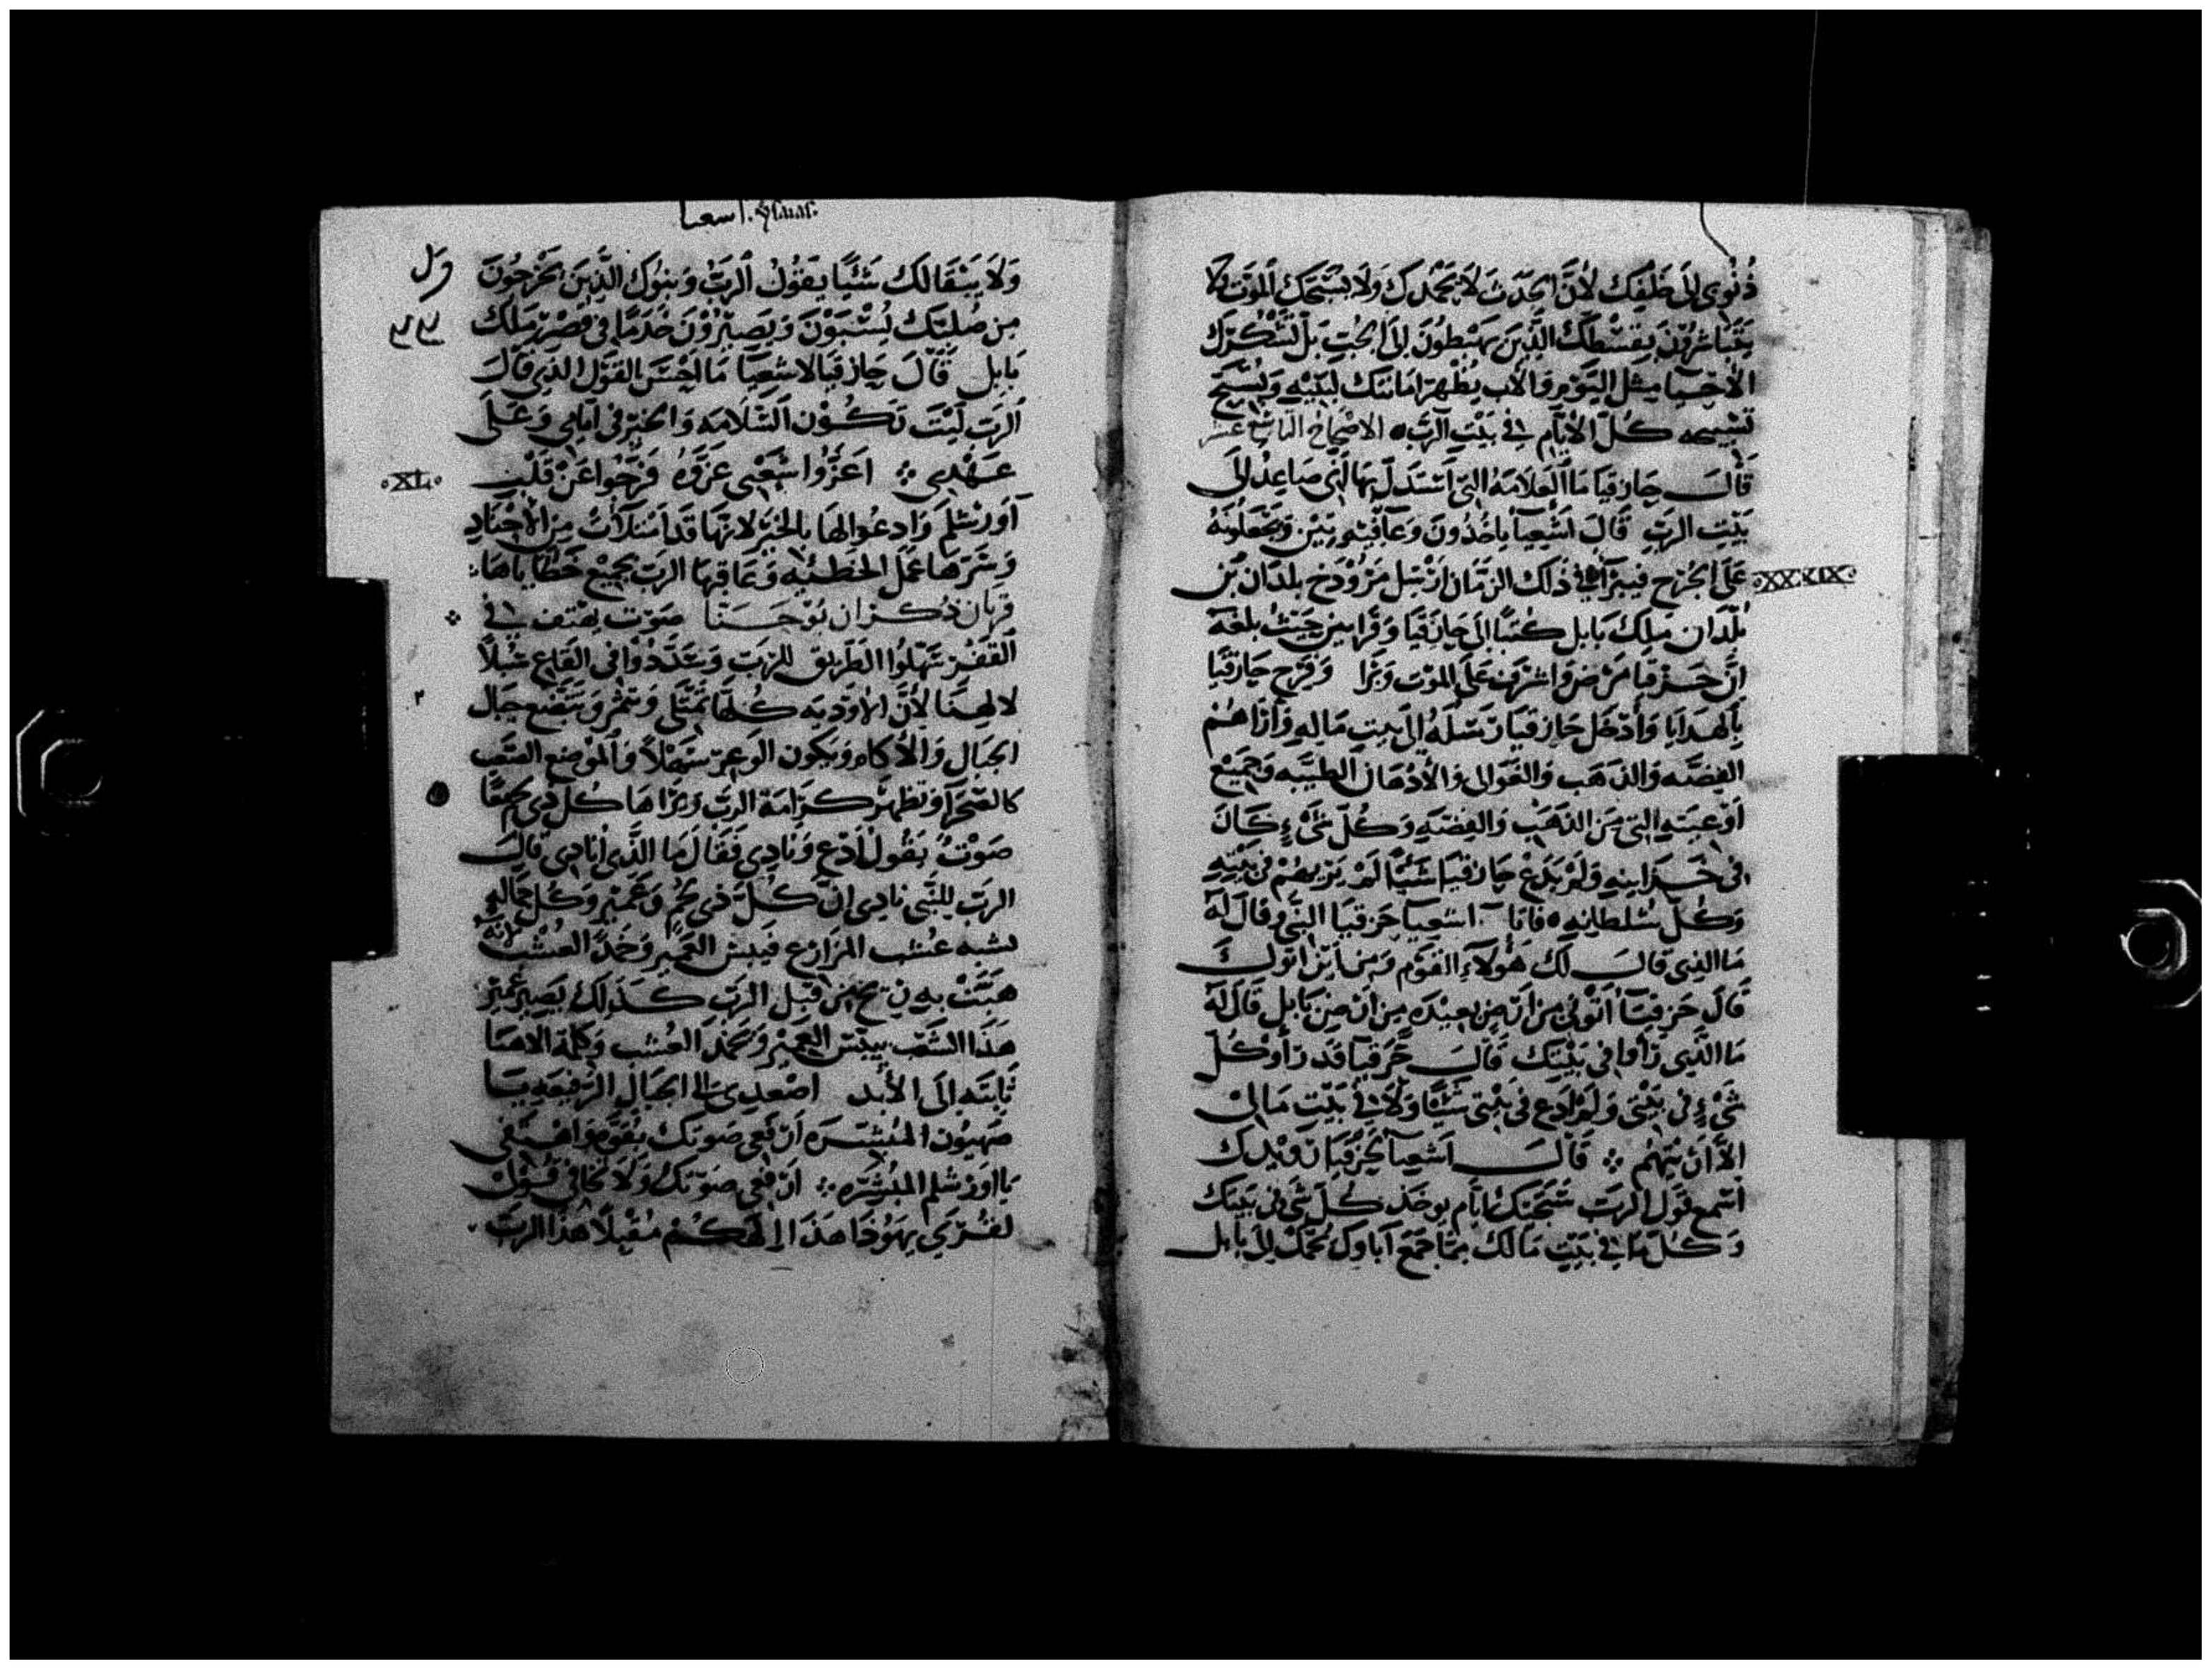 ذُنُوبي إلى خَلْفِك لأنَّ الجَدَث لا يَحْمَدك وَلا يُسَبّحك المَوْت ولا
يَتَباشرُون بِقسْطك الَّذِين يَهْبطُون إلى الجُبّ بَل لتَشْكُرك
الأحْيَا مِثل اليَوْم وَالأب يُظهر امَانتك لبَنيْه وَنُسَبح
تسْبيحه كُل الأيّام في بَيْتِ الرَّب الاصحاح التاسع عشر
قَالَ حازقيَا مَا العَلامَه التي اسْتدل بهَا أني صَاعِد إلى
بَيْت الرَبّ قَالَ اشْعيَا يَاخُذُونَ وَيَجْعَلونَهُ
عَلَى الجُرْح فيبرَا في ذَلك الزمَان ارْسَل مَرُوْدَخ بلدَان بْن
بُلْدَان مَلِك بَابل كُتبًا إلى حَازقيَا وَقَرابين حَيْثُ بلغَهُ
انَّ حَزقيَا مَرْض وَاشرَف عَلى المَوْت وَبَرَا وَفَرح حَازقيَا
بِالهدَايَا وَأدْخَل حَازقيَا رسَلهُ إلى بيتِ مَالِهِ وَأرَاهُم
الفِضَّه وَالذهَب وَالغَوَالى وَالأدْهَان الطيّبَه وَجَمِيْع
أوْعيَته التي مِنَ الذهَب وَالفِضّهِ وَكُلّ شَيْءٍ كَانَ
فى خَزَاينِهِ وَلَمْ يَدَعْ حَازقيَا شَيْئًا لَمْ يُرِيهُمْ في بَيْتِهِ
وَكُلّ سُلطانِهِ فَاتَا اشعيا حَزقيَا النبيُّ وقالَ لَهُ
مَا الذِي قالَ لَكَ هَؤُلاءِ القَوْم وَمِن أيْنَ اتوكَ
قَالَ حَزقيَا أتَوْني مِن أرْضٍ بعِيْدَه مِن أرْض بَابل قَالَ لَهُ
مَا الَّذِي رَأوا في بَيْتِك قَالَ حَزقيَا قَد رَأوْ كُلّ
شَيْءٍ في بَيْتِي وَلَمْ أدَع في بَيْتي شَيْئًا وَلَا في بَيْت مَالي
الَّا أرَيْتهُم قَالَ اشْعيَا لحَزقيَا
اسْمع قَوْل الرَبّ سَتجيْك أيَّام يوخَذ كُل شَي في بَيتك
وَكُل مَا في بَيْتِ مَالك مِمَّا جَمَعَ آبَاوكَ يُحْمَلُ إلى بَابل
اسعيا
وَلَا يَبْقَا لَكَ شَيْئًا يَقُوْلُ الرَبُّ وَبنوك الَّذِين يَخْرجُونَ
مِن صُلبِك يُسْبَوْنَ وَيَصِيْرُوْنَ خُدَمًا في قصْر مَلك
بَابل قَالَ حازقيَا لاشعِيَا مَا احْسَن القَوْل الذي قالَ
الرَب لَيْتَ تَكُوْن السَّلامَه وَالخيْر في أيَامي وَعَلَى
عَهْدِي اعَزُّوا شعْبى عَزّوهُ فَرّحُوا عَنْ قَلْب
XL
أورَشلم وَادعُوا لها بالخَيْر لانهَا قَد امْتلَأتْ مِن الأجْنَاد
عَمَل الخَطِيْئه وَعَاقبهَا الربّ بجمِيْع خَطَايَاهَا
قربان ذكران يُوْحَنا صَوْت يهْتف في
القَفْر سَهّلوُا الطَريق للرَب وَعَدّدُوْا في القَاعِ سُبُلاً
لالهنا لأنّ الأوْديَه كُلهَا تَمتلي وَتتضِع جبَال
الجبَال وَالأكام وَيكون الوَعِر سَهْلاً وَالمَوْضع الصَّعْب
كالصّحْرَا وَتظهَر كرَامَة الربّ وَيرَاهَا كُل ذِي لحْم مَعًا
صَوْتٌ يَقُول ادْع وَنَادِي فَقَالَ مَا الَّذي أنادي قالَ
الربّ للنَّبي نادِي أنَّ كُلّ ذِي لحْم وَكُل جَمَاله
شبه عُشب المزَارع فيَبس وَخمَد العُشبْ لأنّه
هبَّتْ به رِيْح مِن قبَل الربّ كَذَلك يَصِير
هَذَا الشَعْب يَيْبس وَيَخْمد العُشب وَكلمَة الاهنَا
ثَابته إلى الأبد اصْعدِي عَلى الجبَال الرَفيعَه يَا
صَهيُون المُبشّرَه ارْفَعي صَوتك بقُوَّه وَاهتفي
يَا اورَشلم المُبشّره ارْفَعي صَوتكُ وَلا تخَافي قُوْلى
لقُرَي يَهُوذَا هَذَا إلهكُمْ مُقْبِلًا هذَا الربّ
XXXIX